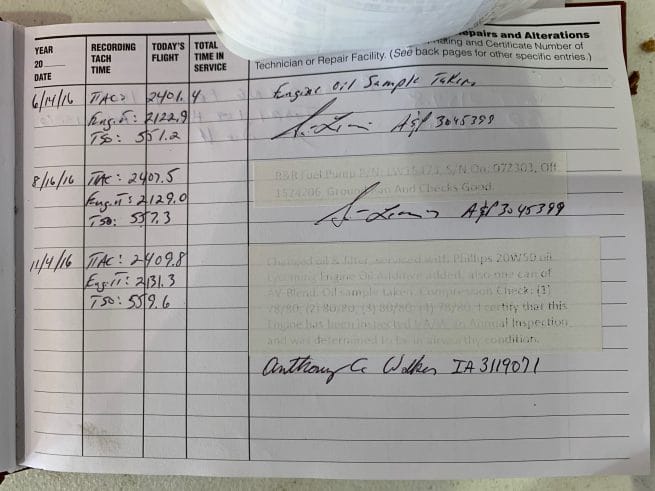 epairs and Alterations
YEAR RECORDING TODAY'S TOTAL
20 TACH FLIGHT TIME IN
DATE TIME SERVICE
and Certificate Number of
Technician or Repair Facility. (See back pages for other specific entries.)
6/14/16 TTAC: 2401.4 Engine oil Sample Taken
Eng.TT: 2122.9 A&P 3045399
TSO: 551.2
8/16/16 TTAC: 2407.5 R&R Fuel Pump P/N: LW15473, S/N On: 072303, Off:
Eng.TT: 2129.0 1524206, Ground Ran And Checks Good.
TSO: 557.3 A&P 3045399
11/4/16 TTAC: 2409.8 Changed oil & filter, serviced with Phillips 20W50 oil
Eng.TT: 2131.3 Lycoming Engine Oil Additive added, also one can of
TSO: 559.6 AV-Blend. Oil sample taken. Compression Check: (1)
78/80, (2) 80/80, (3) 80/80, (4) 78/80. I certify that this
Engine has been inspected I/A/W an Annual Inspection
and was determined to be in airworthy condition.
Anthony C Walker IA 3119071